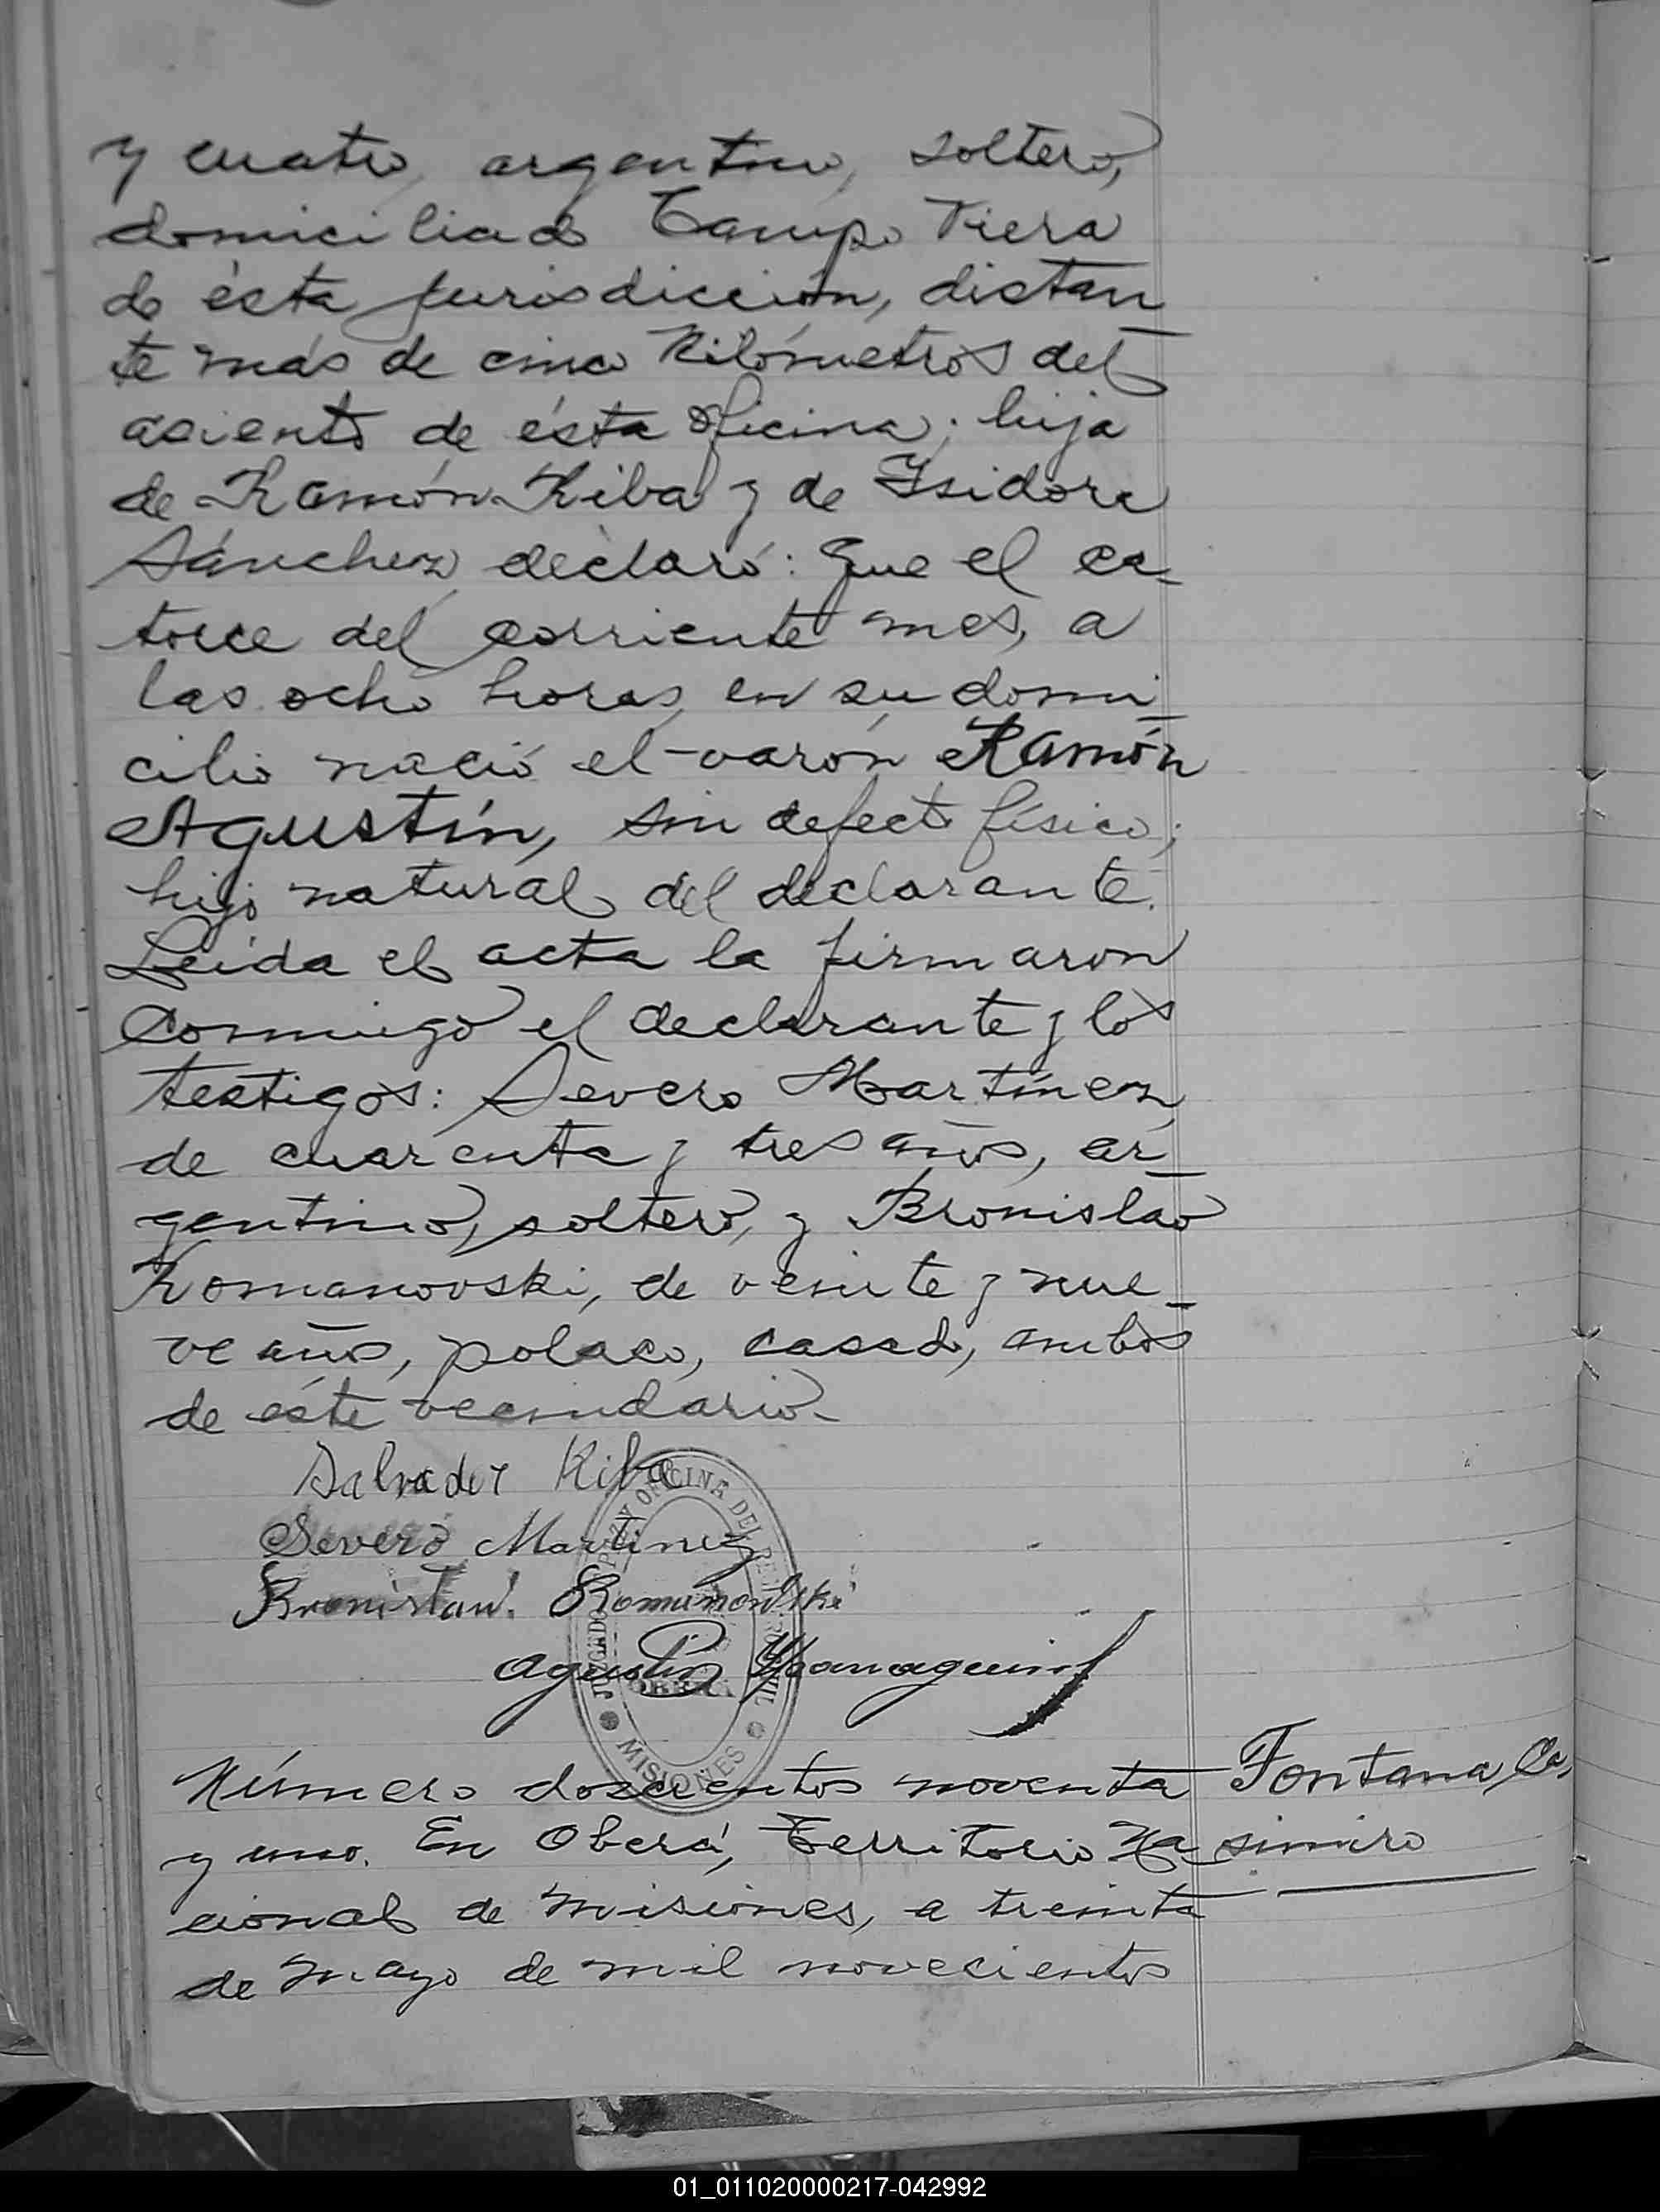 y cuatro, argentino, soltero,
domiciliado Campo Viera
de ésta jurisdicción, distan
te más de cinco Kilómetros del
asiento de ésta oficina; hijo
de Ramón Riba y de Ysidora
Sánchez, declaró: Que el ca-
torce del corriente mes, a
las ocho horas, en su domi-
cilio nació el varón Ramón
Agustín, sin defecto físico;
hijo natural del declarante.
Leída el acta la firmaron
conmigo el declarante y los
testigos: Severo Martínez,
de cuarenta y tres años, ar-
gentino, soltero, y Bronislao
Romanovski, de veinte y nue-
ve años, polaco, casado, ambos
de éste vecindario.-
Salvador Riba
Severo Martinez
Bronislaw. Romanowski
Agustín
JUZGADO DE PAZ Y OFICINA DEL REGISTRO CIVIL
OBERÁ
MISIONES
Número doscientos noventa
y uno. En Oberá, Territorio Na-
cional de Misiones, a treinta
de mayo de mil novecientos
Fontana, Ca-
simiro
01_011020000217-042992